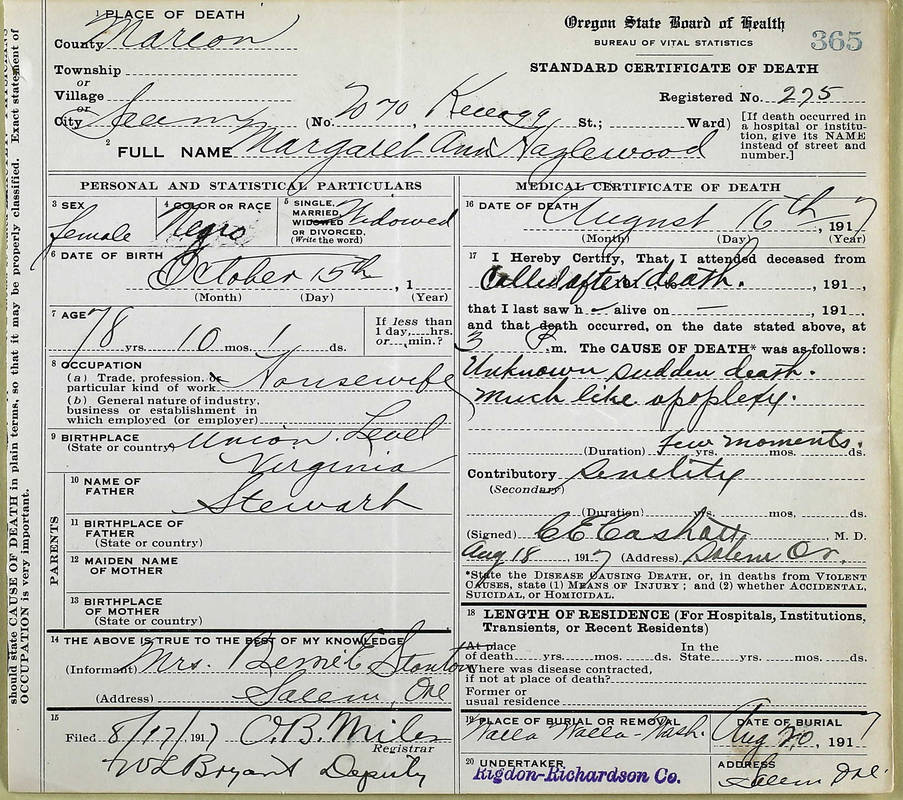 should state CAUSE OF DEATH in plain terms, so that it may be properly classified. Exact statement of
OCCUPATION is very important.
1 PLACE OF DEATH
County Marion
Township
or
Village
or
City Salem (No. 2070, St.; Ward)
Oregon State Board of Health
BUREAU OF VITAL STATISTICS
365
STANDARD CERTIFICATE OF DEATH
Registered No. 275
[If death occurred in
a hospital or institu-
tion, give its NAME
instead of street and
number.]
2 FULL NAME Margaret Ann Hazlewood
PERSONAL AND STATISTICAL PARTICULARS
3 SEX
female
4 COLOR OR RACE
Negro
5 SINGLE,
MARRIED,
WIDOWED
OR DIVORCED.
(Write the word)
Widowed
6 DATE OF BIRTH
October 15th, 1
(Month) (Day) (Year)
7 AGE
78 yrs. 10 mos. 1 ds.
If less than
1 day, hrs.
or min.?
8 OCCUPATION
(a) Trade, profession, or
particular kind of work Housewife
(b) General nature of industry,
business or establishment in
which employed (or employer)
9 BIRTHPLACE
(State or country) Union Level
Virginia
PARENTS
10 NAME OF
FATHER
Stewart
11 BIRTHPLACE OF
FATHER
(State or country)
12 MAIDEN NAME
OF MOTHER
13 BIRTHPLACE
OF MOTHER
(State or country)
14 THE ABOVE IS TRUE TO THE BEST OF MY KNOWLEDGE
(Informant) Mrs. Stanton
(Address) Salem, Ore
15
Filed 8/17/, 1917 O.B. Miles
Registrar
W L Bryant Deputy
MEDICAL CERTIFICATE OF DEATH
16 DATE OF DEATH
August 16th, 1917
(Month) (Day) (Year)
17 I Hereby Certify, That I attended deceased from
Called after death. 191
that I last saw h alive on — , 191
and that death occurred, on the date stated above, at
3 P.m. The CAUSE OF DEATH* was as follows:
Unknown sudden death.
Much like apoplexy.
few moments.
(Duration) yrs. mos. ds.
Contributory Senelity
(Secondary)
(Duration) yrs. mos. ds.
(Signed) C E Cashatt M. D.
Aug 18, 1917 (Address) Salem Or.
*State the DISEASE CAUSING DEATH, or, in deaths from VIOLENT
CAUSES, state (1) MEANS OF INJURY; and (2) whether ACCIDENTAL,
SUICIDAL, or HOMICIDAL.
18 LENGTH OF RESIDENCE (For Hospitals, Institutions,
Transients, or Recent Residents)
At place In the
of death yrs. mos. ds. State yrs. mos. ds.
Where was disease contracted,
if not at place of death?
Former or
usual residence
19 PLACE OF BURIAL OR REMOVAL
Walla Walla-Wash.
DATE OF BURIAL
Aug 20, 1917
20 UNDERTAKER
Rigdon-Richardson Co.
ADDRESS
Salem Ore.